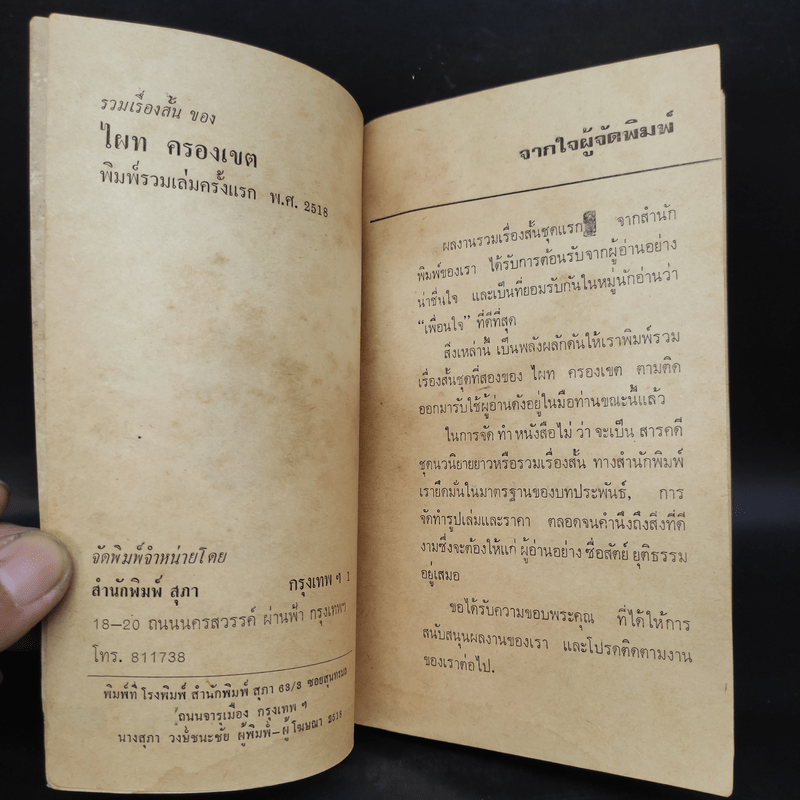 รวมเรื่องสั้น ของ
ไผท ครองเขต
พิมพ์รวมเล่มครั้งแรก พ.ศ. 2518
จัดพิมพ์จำหน่ายโดย
สำนักพิมพ์ สุภา กรุงเทพ ฯ 1
18–20 ถนนนครสวรรค์ ผ่านฟ้า กรุงเทพฯ
โทร. 811738
พิมพ์ที่ โรงพิมพ์ สำนักพิมพ์ สุภา 63/3
ถนนจารุเมือง กรุงเทพ ฯ
นางสุภา วงษ์ชนะชัย ผู้พิมพ์–ผู้โฆษณา 2518
จากใจผู้จัดพิมพ์
ผลงานรวมเรื่องสั้นชุดแรก จากสำนัก
พิมพ์ของเรา ได้รับการต้อนรับจากผู้อ่านอย่าง
น่าชื่นใจ และเป็นที่ยอมรับกันในหมู่นักอ่านว่า
“เพื่อนใจ” ที่ดีที่สุด
สิ่งเหล่านี้ เป็นพลังผลักดันให้เราพิมพ์รวม
เรื่องสั้นชุดที่สองของ ไผท ครองเขต ตามติด
ออกมารับใช้ผู้อ่านดังอยู่ในมือท่านขณะนี้แล้ว
ในการจัด ทำ หนังสือไม่ ว่า จะเป็น สารคดี
ชุดนวนิยายยาวหรือรวมเรื่องสั้น ทางสำนักพิมพ์
เรายึดมั่นในมาตรฐานของบทประพันธ์, การ
จัดทำรูปเล่มและราคา ตลอดจนคำนึงถึงสิ่งที่ดี
งามซึ่งจะต้องให้แก่ ผู้อ่านอย่าง ซื่อสัตย์ ยุติธรรม
อยู่เสมอ
ขอได้รับความขอบพระคุณ ที่ได้ให้การ
สนับสนุนผลงานของเรา และโปรดติดตามงาน
ของเราต่อไป.